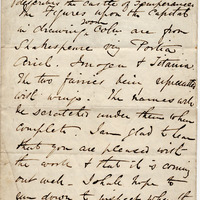 defending the Castle of Temperance
The Figures upon the Capitals
in drawing room are from
Shakespeare viz Portia
Ariel. Imogen & Titania
The two fairies being
with wings. The names will
be scratched under them when
complete. I am glad to hear
that you are pleased with
the work & that it is coming
out well. I shall hope to
run down to inspect